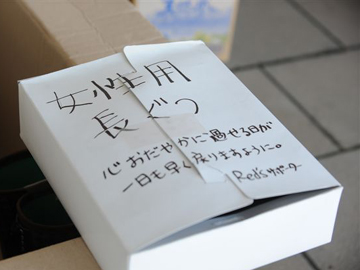 女性用
長ぐつ
心おだやかに過せる日が
一日も早く戻りますように。
Red'sサポーター